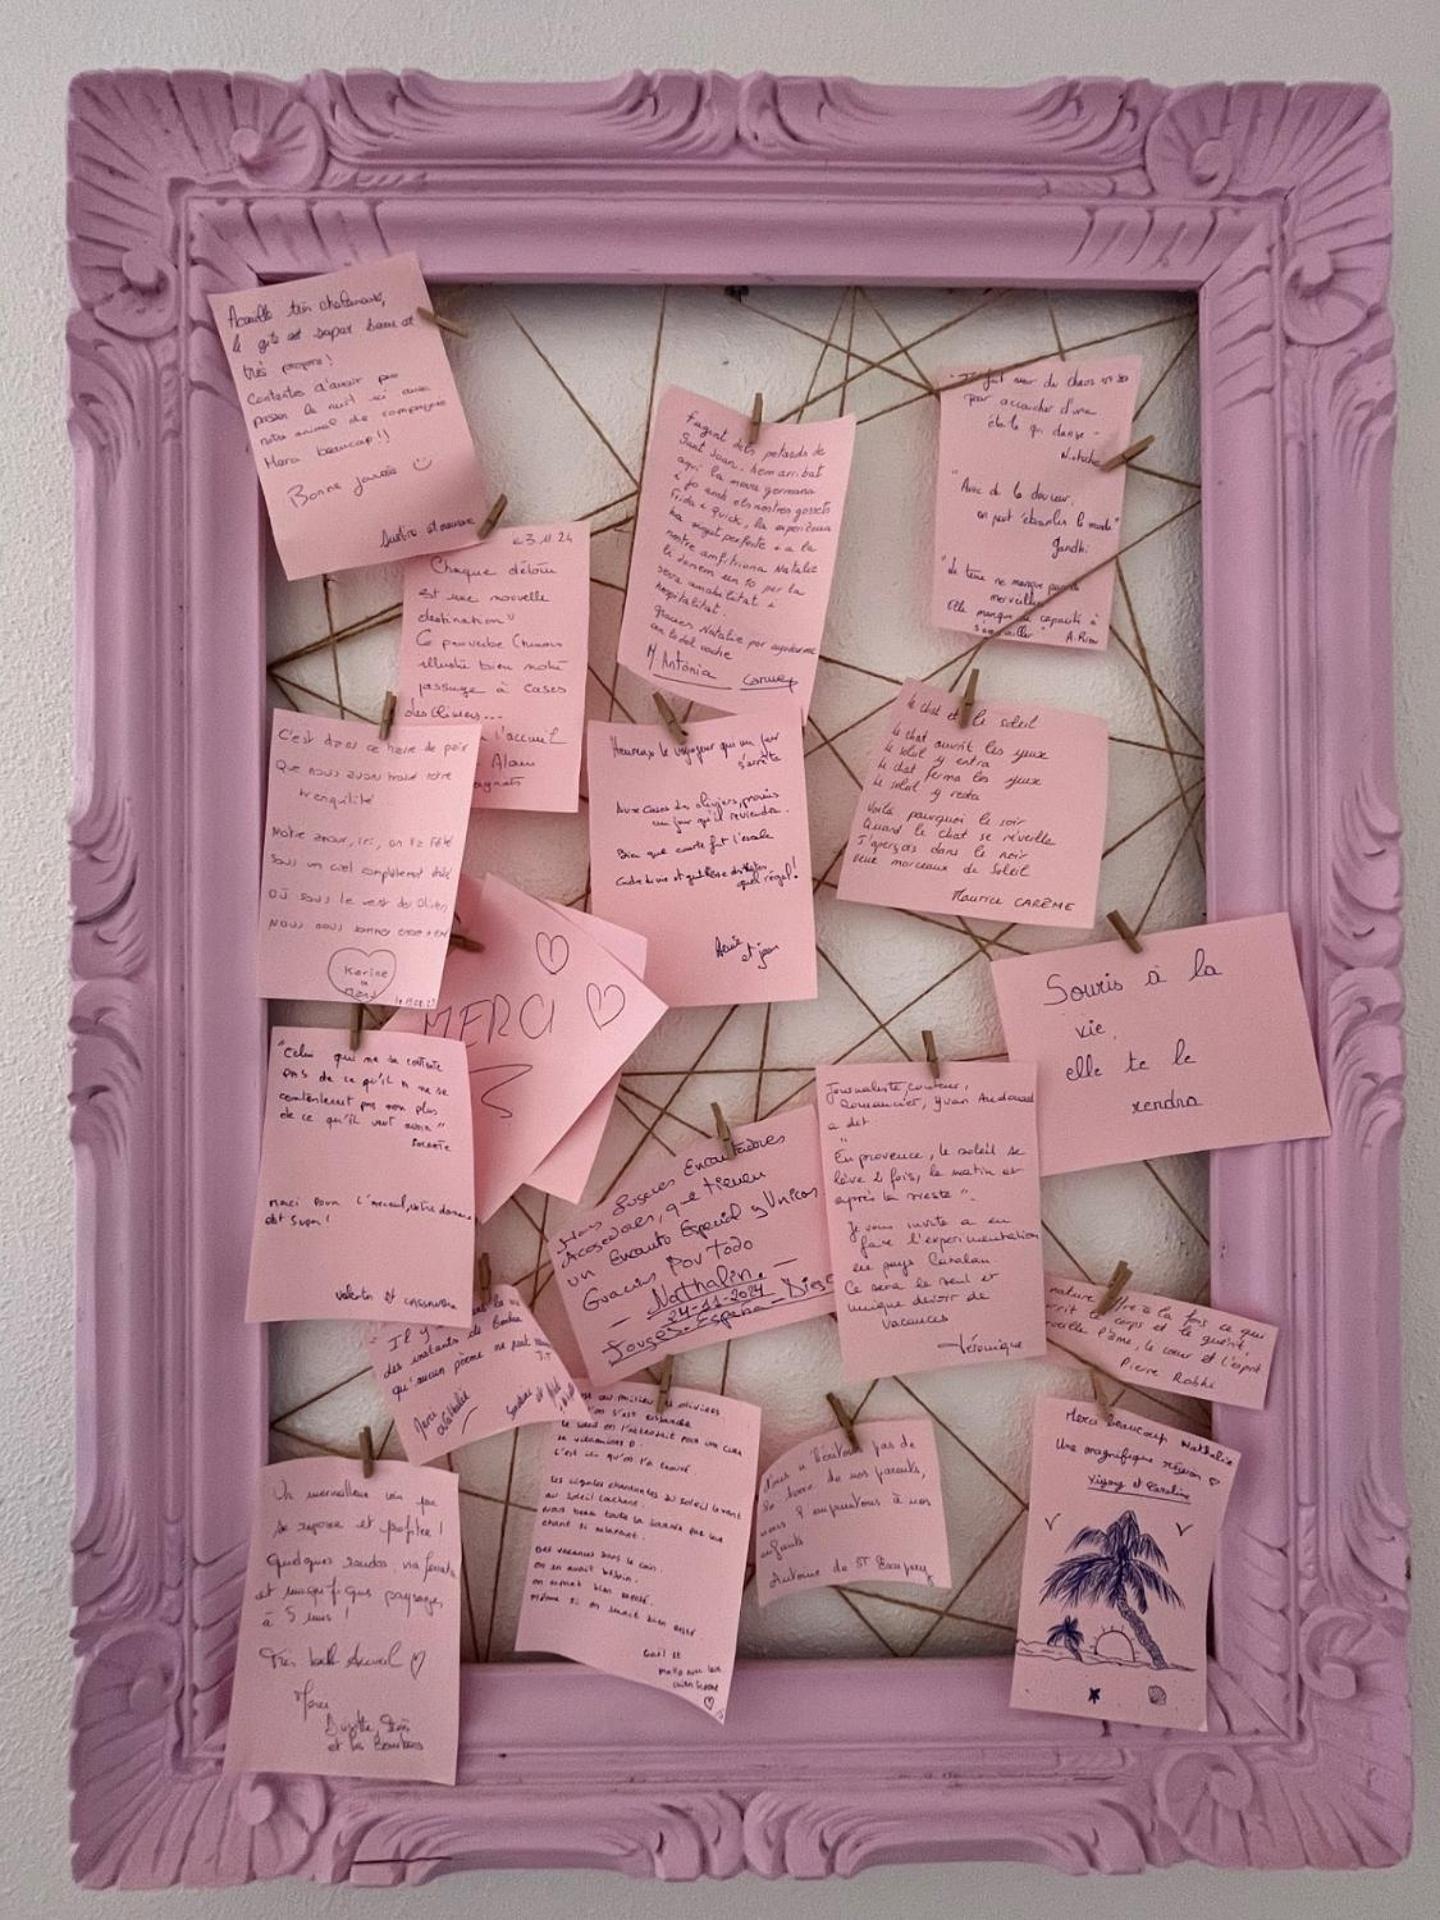 Accueille très chaleureuse,
le gîte est super beau et
très propre!
Contentes d'avoir pu
passer la nuit ici avec
notre animal de compagnie
Merci beaucoup!!
Bonne journée
23.11.24
Chaque détour
est une nouvelle
destination"
Ce proverbe
illustre bien notre
passage à Cases
des Oliviers...
l'accueil
Alain
Fugint dels petards de
Sant Joan, hem arribat
aquí la meva germana
i jo amb els nostres gossets
Frida i Quick, la experiència
ha sigut perfecte i a la
nostre amfitriona Natalie
li donem un 10 per la
seva amabilitat i
hospitalitat.
Gracies Natalie por ayudarme
con lo del coche
M. Antònia Carmen
Il faut avoir du chaos en soi
pour accoucher d'une
étoile qui danse -
Nietzche
"Avec de la douceur,
on peut ébranler le monde"
Gandhi
"La terre ne manque pas de
merveilles
Elle manque de capacité à
s'émerveiller"
C'est dans ce havre de paix
Que nous avons trouvé notre
tranquilité
Notre amour, ici, on l'a fêté
Sous un ciel complètement étoilé
Où sous le vent des Oliviers
Nous nous sommes
Karine
Heureux le voyageur qui un jour
s'arrête
Aux Cases des oliviers, promis
un jour qu'il reviendra.
Bien que courte fut l'escale
quel régal!
Annie
et jean
Le chat et le soleil
Le chat ouvrit les yeux
Le soleil y entra
Le chat ferma les yeux
Le soleil y resta
Voilà pourquoi le soir
Quand le chat se réveille
J'aperçois dans le noir
deux morceaux de Soleil
Maurice CARÊME
MERCI
Souris à la
vie,
elle te le
rendra
"Celui qui ne se contente
pas de ce qu'il a ne se
contenterait pas non plus
de ce qu'il veut avoir"
Socrate
Merci pour l'accueil, votre domaine
est super!
Valentin et CASSANDRA
Unos Lugares Encantadores
Acogedores, que tienen
un Encanto Especial y Unicos
Gracias Por Todo
Nathalin.
24-11-2024
España - Diego
Journaliste, conteur,
romancier, Yvan Audouard
a dit
"En provence, le soleil se
lève 2 fois, le matin et
après la sieste".
Je vous invite a en
faire l'expérimentation
en pays Catalan.
Ce sera le seul et
unique devoir de
vacances
Véronique
nature offre à la fois ce qui
nourrit le corps et le guérit,
émerveille l'âme, le cœur et l'esprit
Pierre Rabhi
Il y a dans la vie
des instants de bonheur
qu'aucun poème ne peut
Merci
Nathalie
au milieu des oliviers
on s'est
Le soleil on l'attendait pour une cure
de vitamines D.
C'est ici qu'on l'a trouvé.
Les cigales chantantes du soleil levant
au soleil couchant.
Nous berce toute la journée par leur
chant si relaxant.
Des vacances dans le coin.
on en avait besoin.
on serait bien resté.
même si on serait bien
Gaël et
Nous n'héritons pas de
la terre de nos parents,
nous l'empruntons à nos
enfants
Antoine de ST Exupéry
Merci beaucoup Nathalie
Une magnifique région
et Caroline
Un merveilleux coin pour
se reposer et profiter!
Quelques randos, via ferrata
et magnifiques paysages
à 5 mns!
Très belle Accueil
Merci
Brigitte,
et les